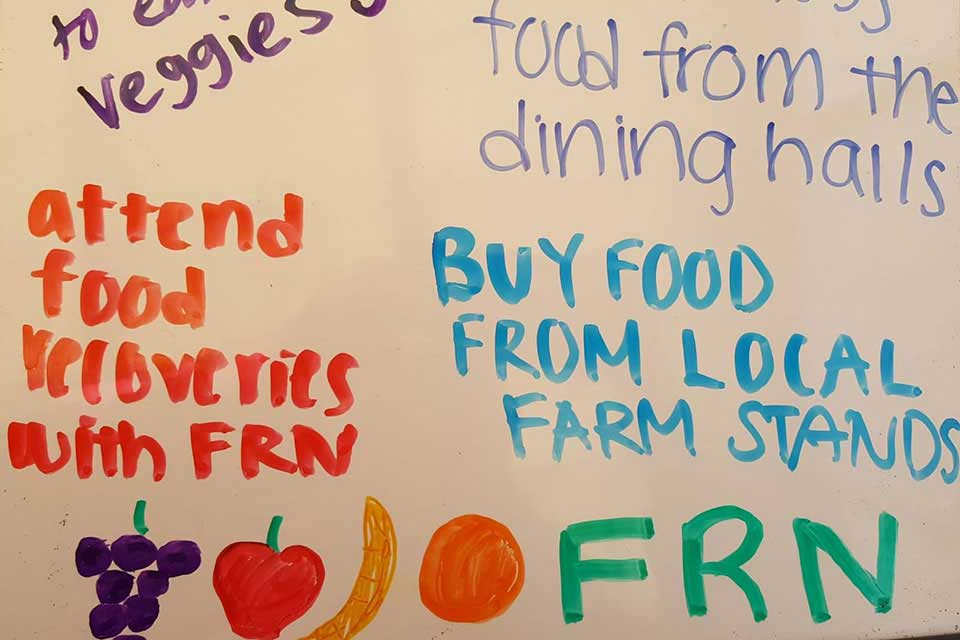 to
veggies
food from the
dining halls
attend
food
recoveries
with FRN
BUY FOOD
FROM LOCAL
FARM STANDS
FRN